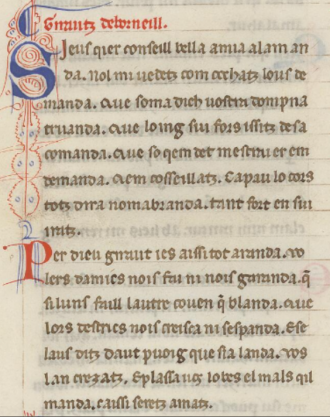 Girautz deborneill.
Sieus qier conseill bella amia alaman
da. nol mi uedetz com cochatz lous de
manda. Que so ma dich uostra dompna
truanda. Que loing sui fors issitz de sa
comanda. Que so qem det mestrai er em
demanda. Qem cosseillatz. Capauc lo cors
totz dinz nom abranda. tant fort en sui
iratz.
Per dieu giraut ies aissi tot a randa. uo
lers damics nois fai ni nois garanda. q̄
si luns faill lautre couen q̄ blanda. Que
lors destrics nois cresca ni sespanda. Ese
laus ditz daut puoig que sia landa. uos
lan crezatz. Eplassa uos lobes el mals qil
manda. caissi seretz amatz.